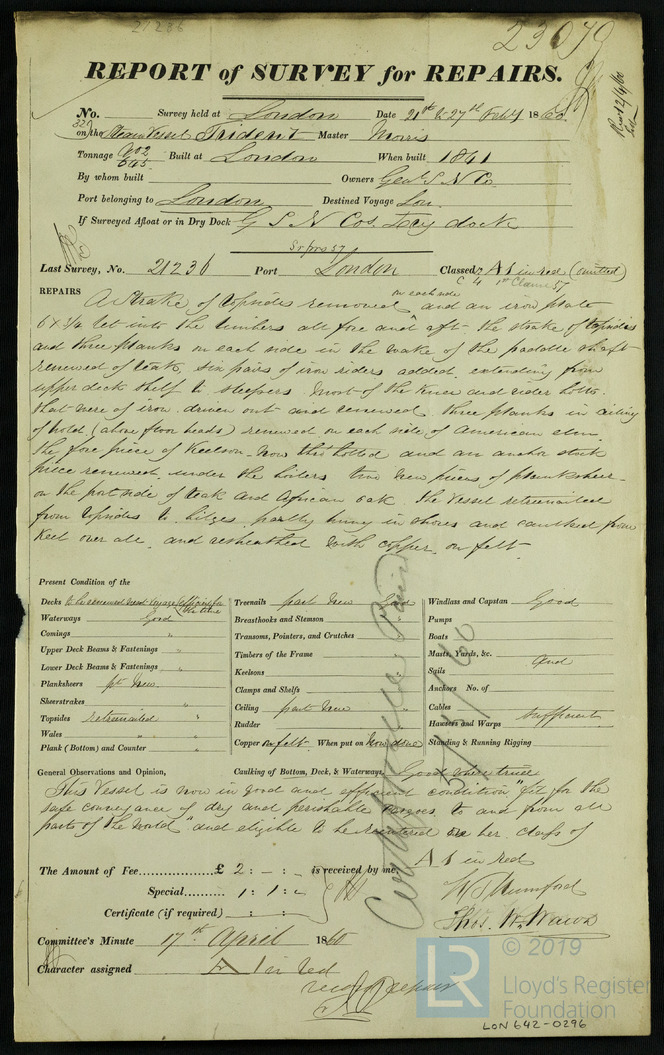 21236
23079
REPORT of SURVEY for REPAIRS.
No. Survey held at London Date 21st to 27th Feby 1860
on the Steam Vessel Trident Master Morris
Tonnage 702 Built at London When built 1841
645
By whom built Owners Genl S N Co
Port belonging to London Destined Voyage Lon.
If Surveyed Afloat or in Dry Dock G S N Cos. Dry dock
Last Survey, No. 21236 Port London Classed A 1 in red (omitted)
REPAIRS A Strake of topsides removed on each side and an iron plate
6 x 3/4 let into the timbers all fore and aft the strake of topsides
and three planks on each side in the wake of the paddle shaft
renewed of teak, six pairs of iron riders added extending from
upper deck shelf to sleepers most of the knee and rider bolts
that were of iron driven out and renewed three planks in ceiling
of hold (above floor heads) renewed on each side of American elm.
the fore piece of Keelson now thro bolted and an anchor stock
piece renewed under the boilers two new pieces of planksheer
on the port side of teak and African oak the vessel retreenailed
from topsides to bilges, partly hung in shores and caulked from
Keel over all, and resheathed with copper on felt.
Present Condition of the
Decks to be renewed next voyage sufficient for
Waterways Good
Comings "
Upper Deck Beams & Fastenings "
Lower Deck Beams & Fastenings "
Planksheers pt New
Sheerstrakes
Topsides retreenailed "
Wales "
Plank (Bottom) and Counter "
Treenails part new Good
Breasthooks and Stemson
Transoms, Pointers, and Crutches "
Timbers of the Frame
Keelsons
Clamps and Shelfs
Ceiling part New "
Rudder
Copper on felt. When put on Now done
Windlass and Capstan Good
Pumps
Boats
Masts, Yards, &c. and
Sails
Anchors No. of
Cables sufficient
Hawsers and Warps
Standing & Running Rigging
General Observations and Opinion, Caulking of Bottom, Deck, & Waterways Good
This Vessel is now in good and efficient condition "fit for the
safe conveyance of dry and perishable cargoes to and from all
parts of the World" and eligible to be her class of
A 1 in red
The Amount of Fee £ 2 : - : - is received by me,
Special 1 : 1 : -
Certificate (if required) : :
W Mumford
Thos. W. Wawn
Committee's Minute 17th April 1860
Character assigned A 1 in red
© 2019
LR
Lloyd's Register
Foundation
LON 642-0296